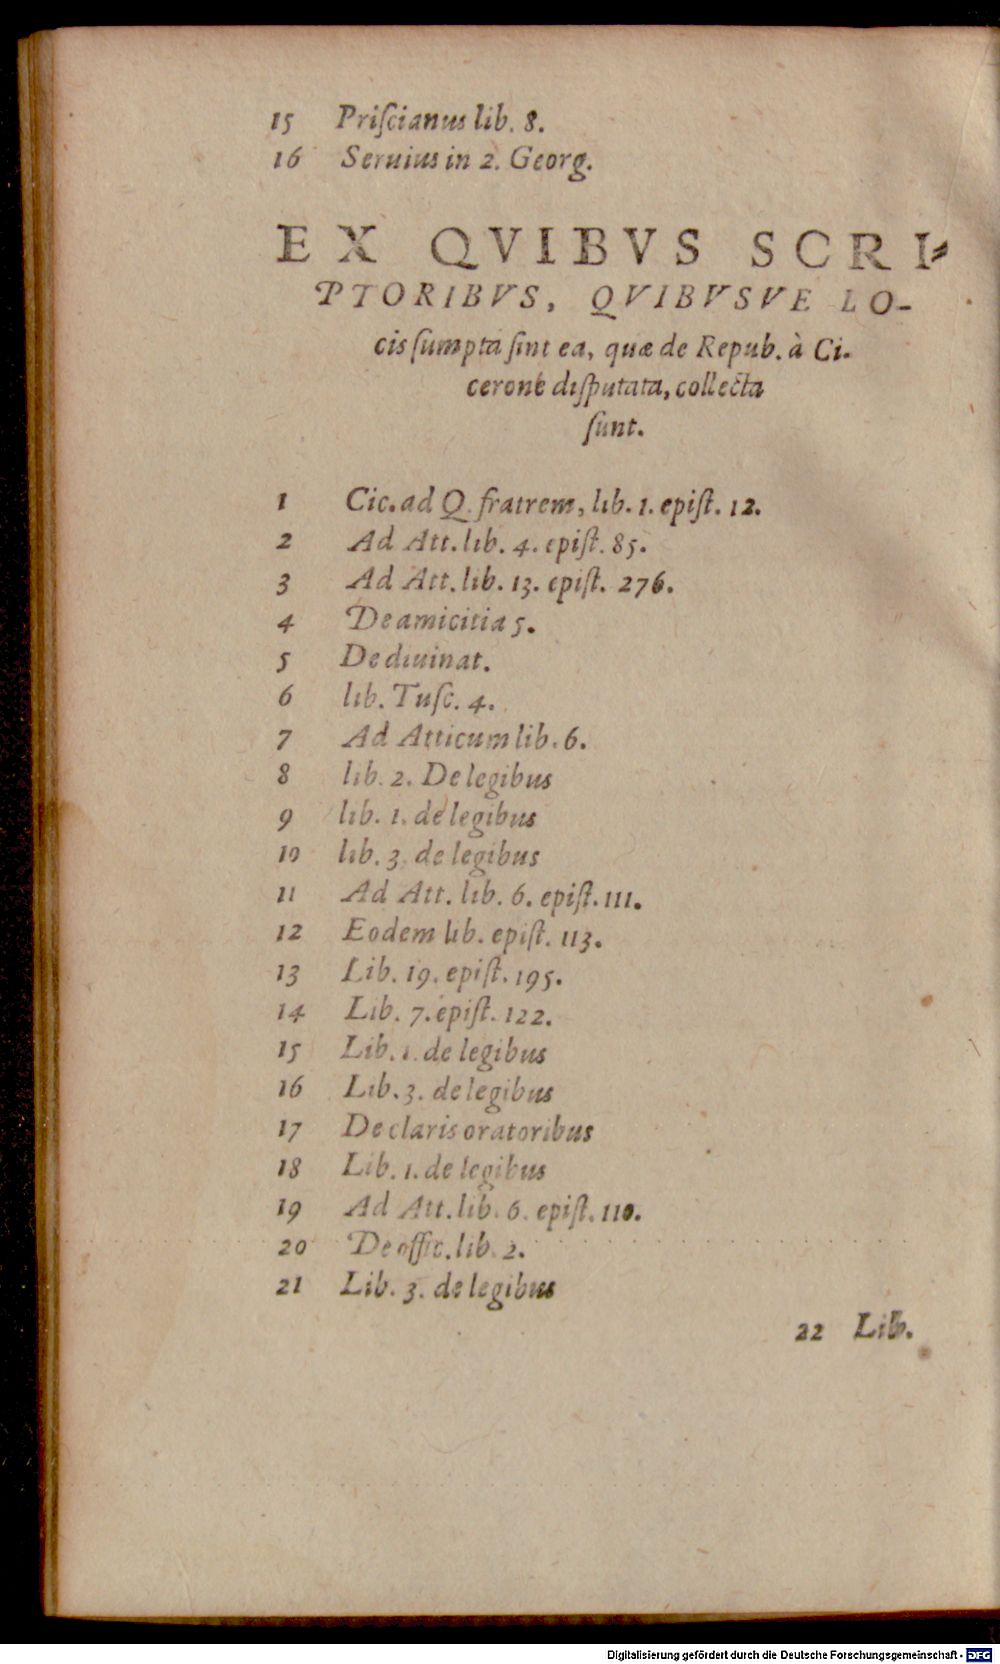 15 Priſcianus lib. 8.
16 Seruius in 2. Georg.
EX QVIBVS SCRI-
PTORIBVS, QVIBVSVE LO-
cis ſumpta ſint ea, quæ de Repub. à Ci-
cerone diſputata, collecta
ſunt.
1 Cic. ad Q. fratrem, lib. 1. epiſt. 12.
2 Ad Att. lib. 4. epiſt. 85.
3 Ad Att. lib. 13. epiſt. 276.
4 De amicitia 5.
5 De diuinat.
6 lib. Tuſc. 4.
7 Ad Atticum lib. 6.
8 lib. 2. De legibus
9 lib. 1. de legibus
10 lib. 3. de legibus
11 Ad Att. lib. 6. epiſt. 111.
12 Eodem lib. epiſt. 113.
13 Lib. 19. epiſt. 195.
14 Lib. 7. epiſt. 122.
15 Lib. 1. de legibus
16 Lib. 3. de legibus
17 De claris oratoribus
18 Lib. 1. de legibus
19 Ad Att. lib. 6. epiſt. 110.
20 De offic. lib. 2.
21 Lib. 3. de legibus
22 Lib.
Digitalisierung gefördert durch die Deutsche Forschungsgemeinschaft - DFG